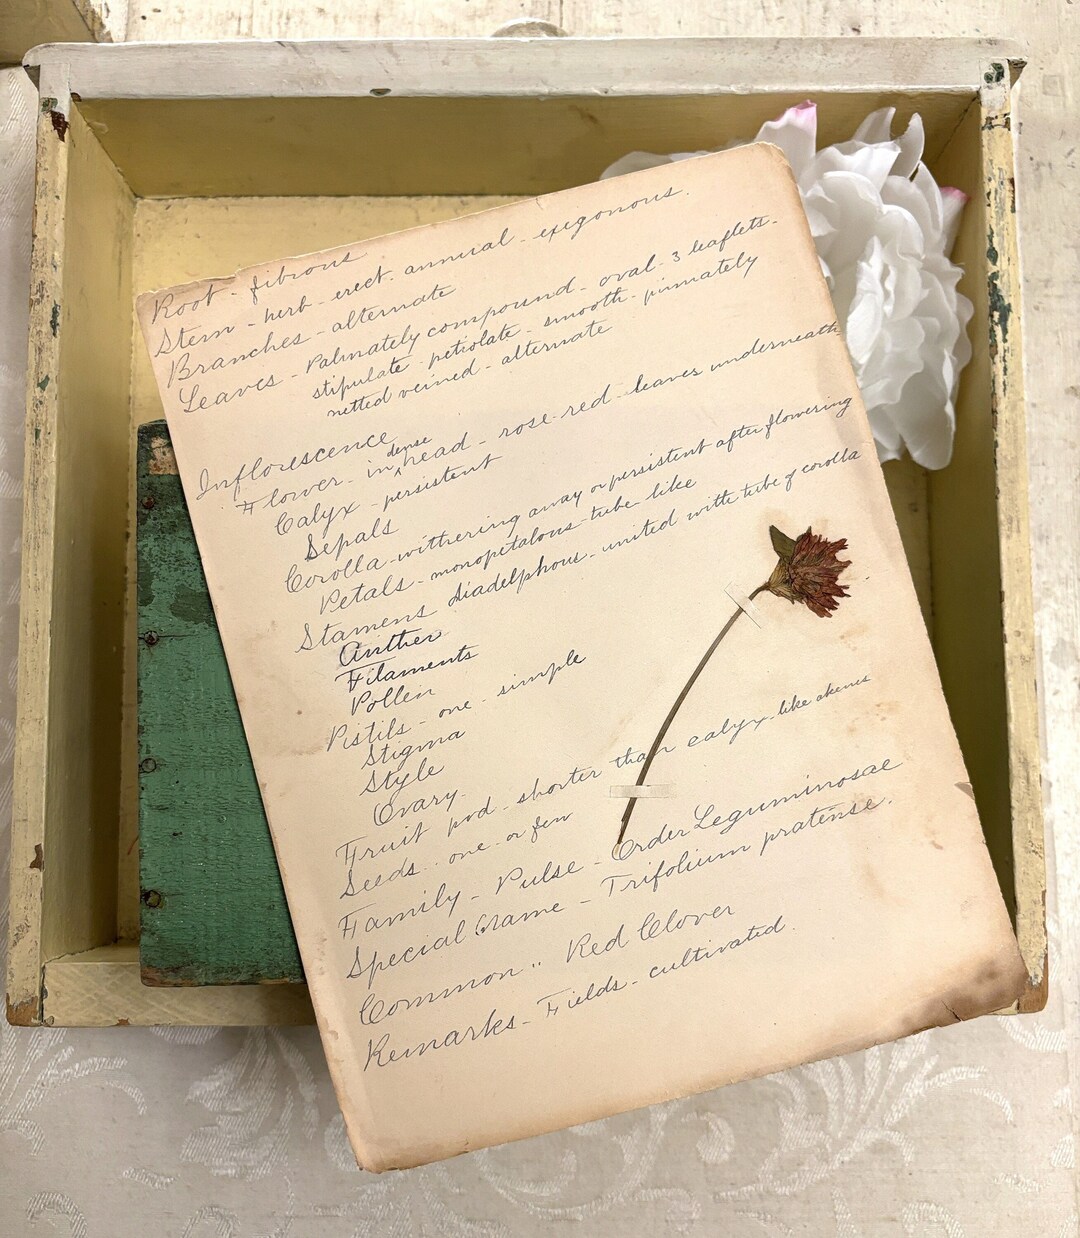 Root - fibrous
Stem - herb - erect. annual - exogonous.
Branches - alternate
Leaves - Palmately compound - oval - 3 leaflets -
stipulate - petiolate - smooth - pinnately
netted veined - alternate
Inflorescence
Flower - in dense head - rose-red - leaves underneath
Calyx - persistent
Sepals
Corolla - withering away or persistent after flowering
Petals - monopetalous - tube-like
Stamens diadelphous - united with tube of corolla
Anther
Filaments
Pollen
Pistils - one - simple
Stigma
Style
Ovary
Fruit pod - shorter than calyx - like akenes
Seeds - one - or few
Family - Pulse - Order Leguminosae
Special Name - Trifolium pratense.
Common " Red Clover
Remarks - Fields - cultivated.